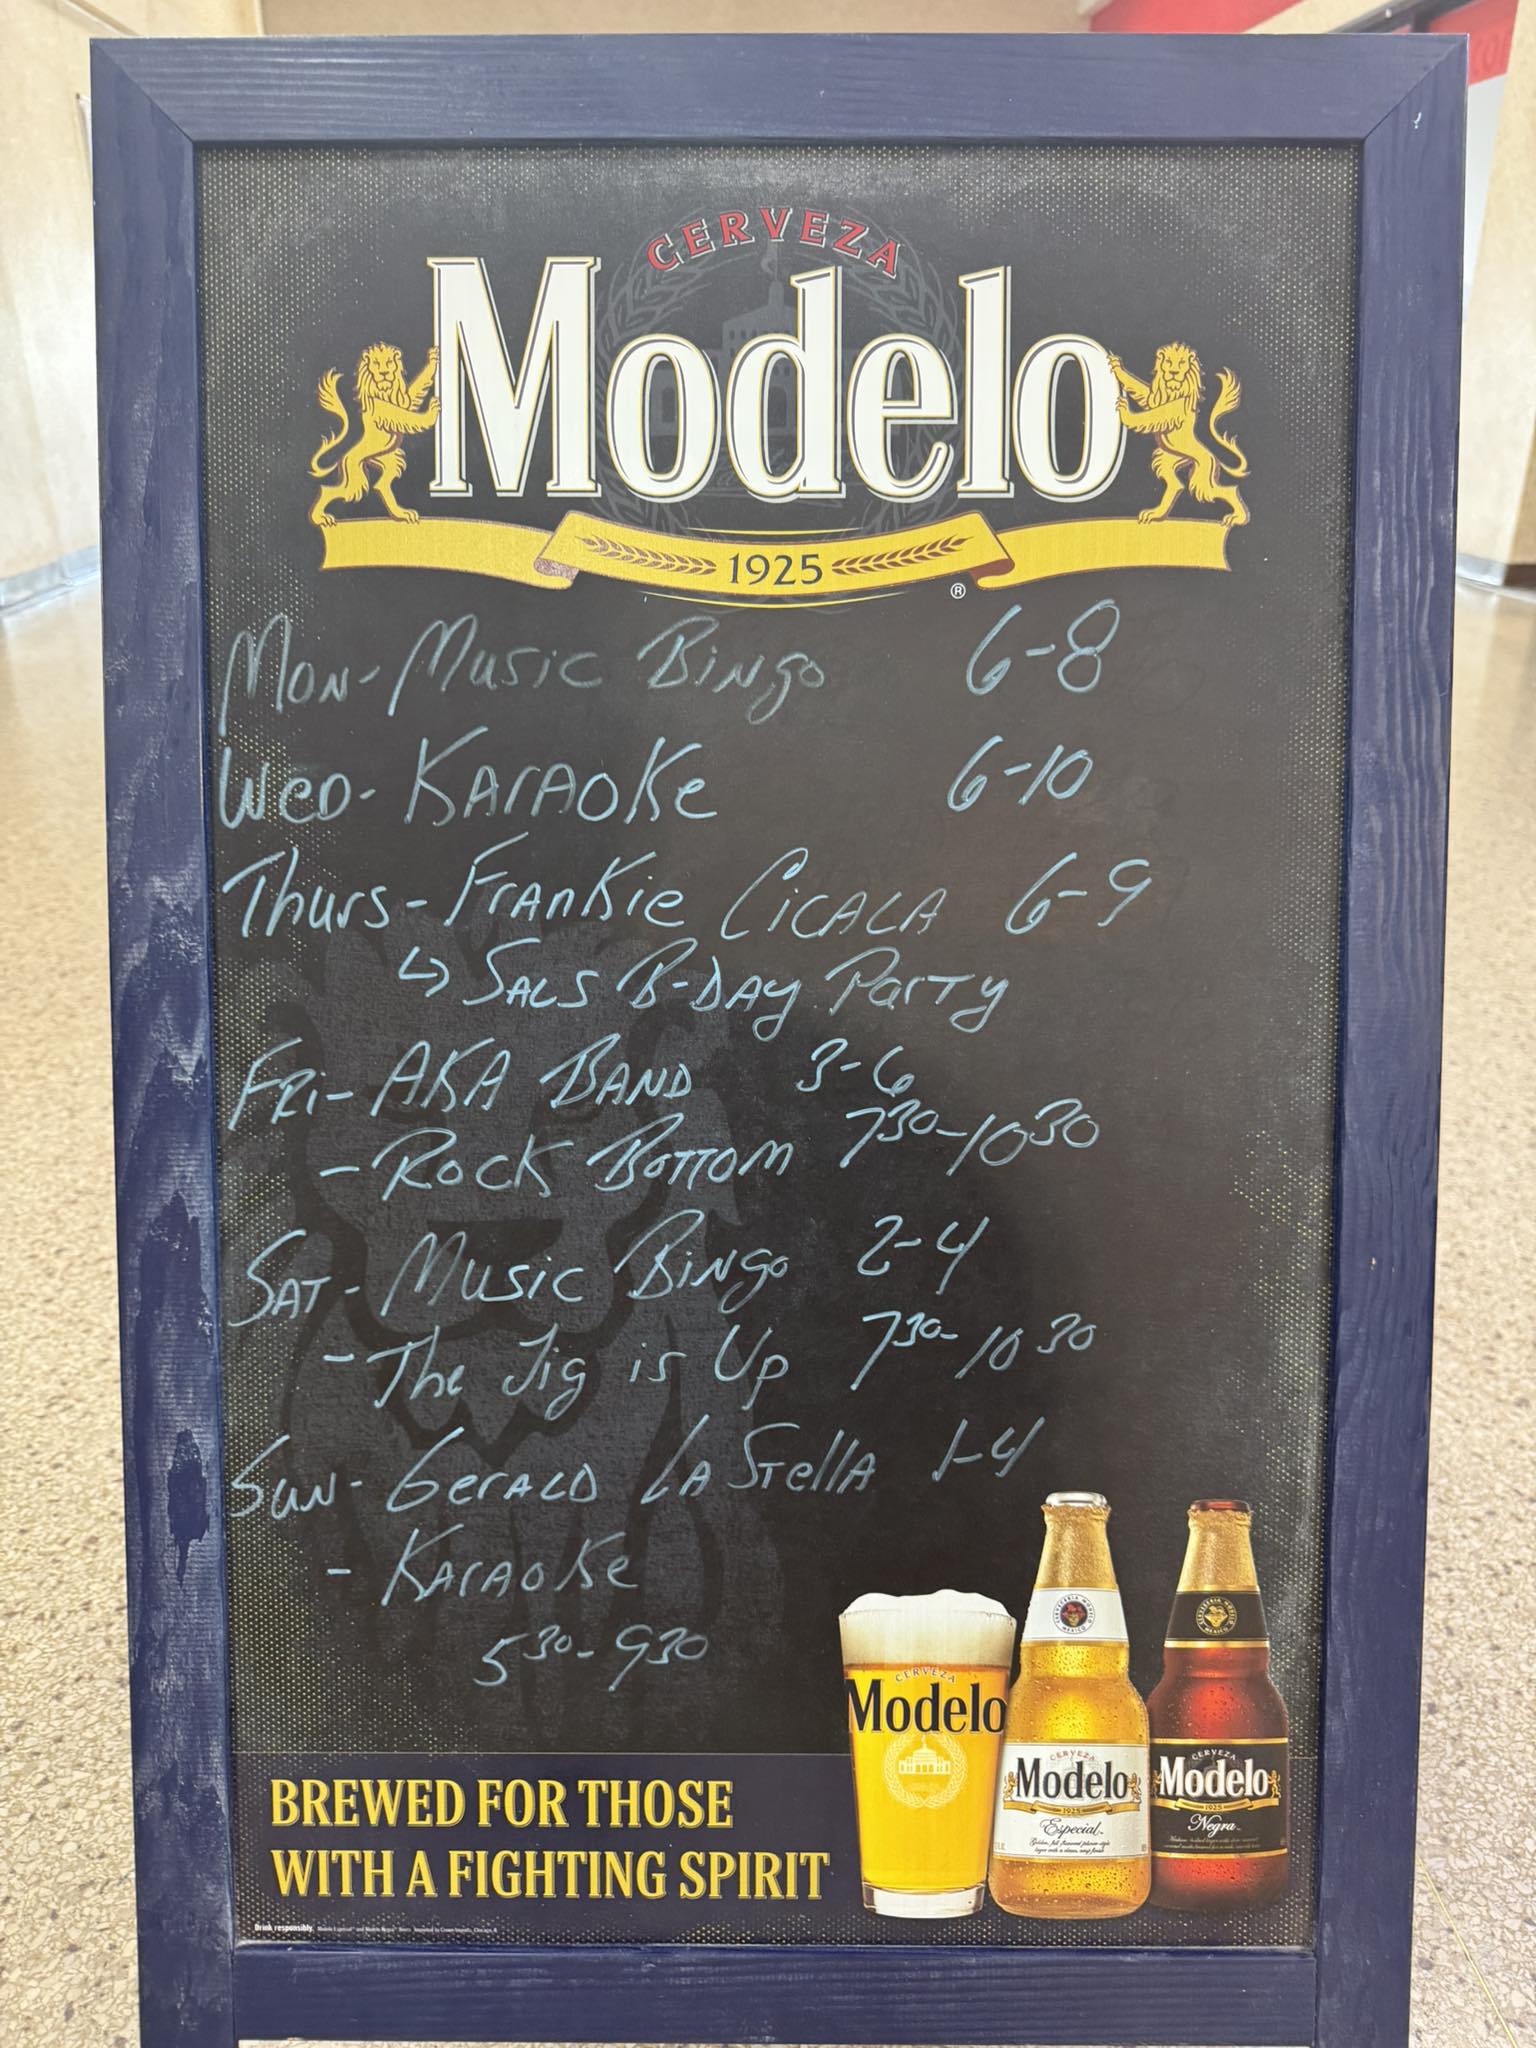 CERVEZA
Modelo
1925
®
Mon-Music Bingo 6-8
Wed-Karaoke 6-10
Thurs-Frankie Cicala 6-9
↳ Sals B-Day Party
Fri-AKA Band 3-6
-Rock Bottom 730-1030
Sat-Music Bingo 2-4
-The Jig is Up 730-1030
Sun-Gerald La Stella 1-4
-Karaoke
530-930
CERVEZA
Modelo
CERVEZA
Modelo
1925
Especial
CERVEZA
Modelo
1925
Negra
BREWED FOR THOSE
WITH A FIGHTING SPIRIT
Drink responsibly.